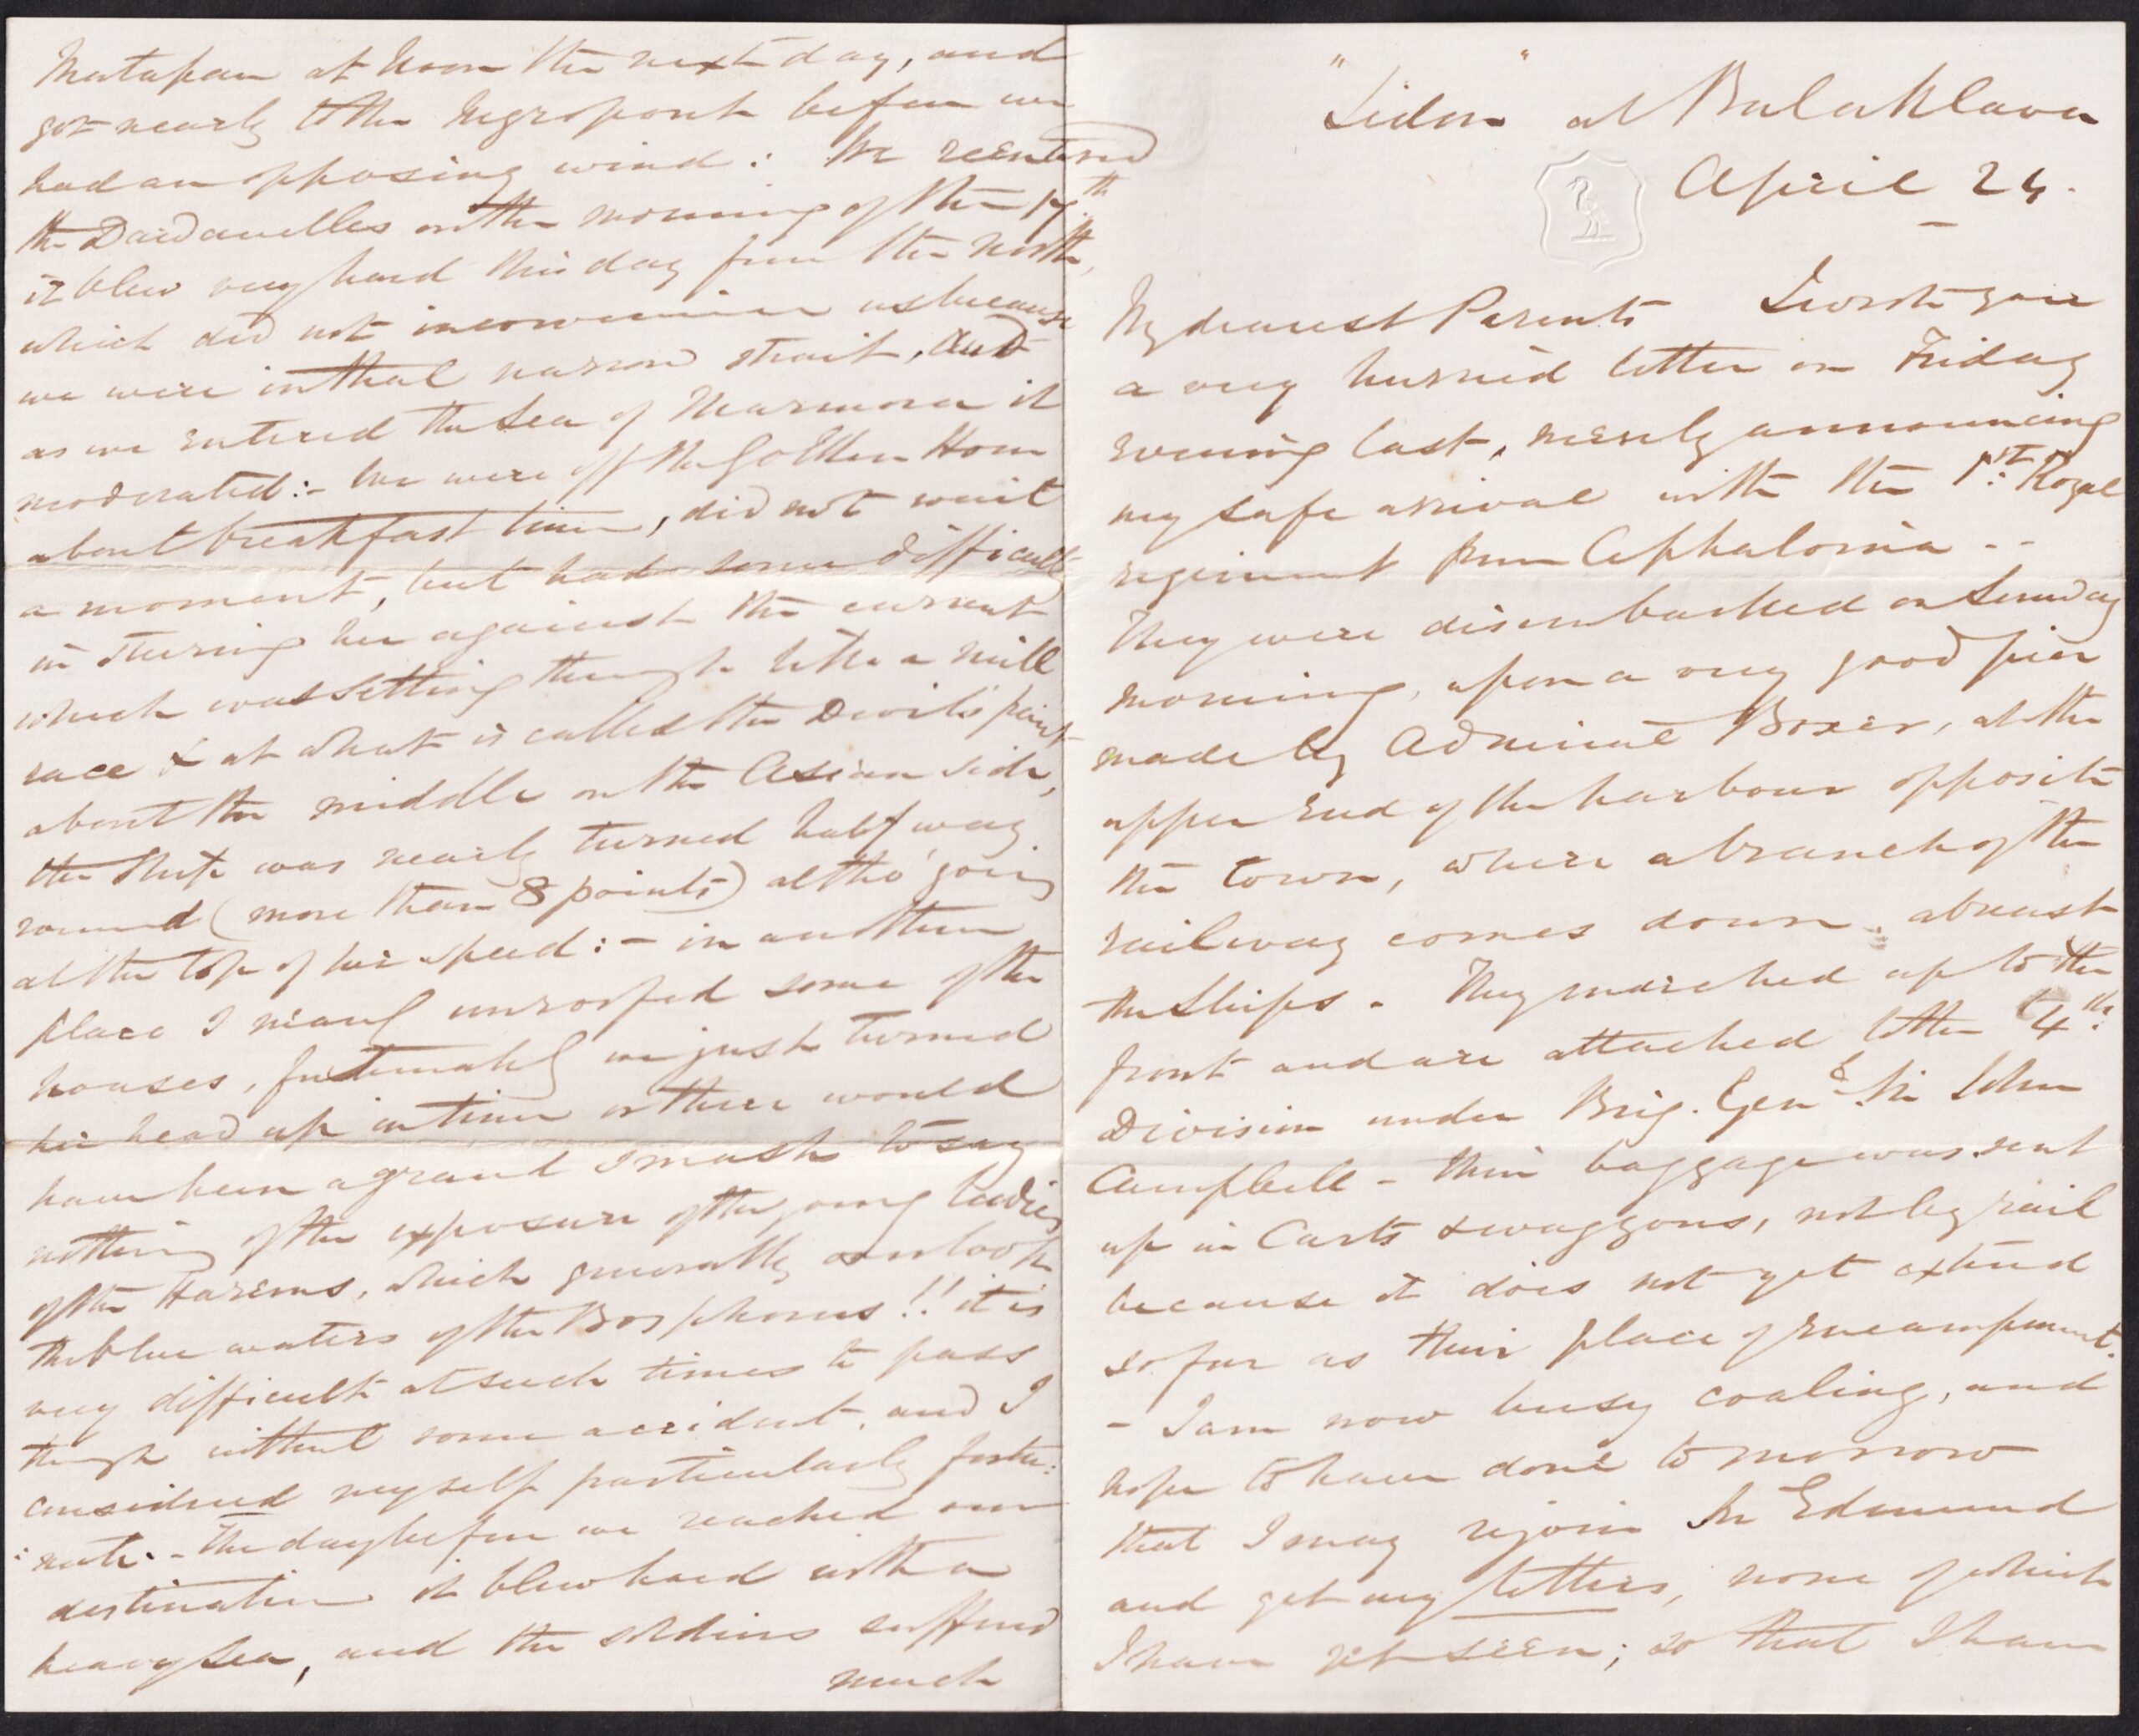 "Sidon" at Balaklava
April 24.
My dearest Parents I wrote you
a very hurried letter on Friday
evening last, merely announcing
my safe arrival with the 1st Royal
regiment from Cephalonia --
They were disembarked on Sunday
morning, upon a very good pier
made by Admiral Boxer, at the
upper end of the harbour opposite
the town, where a branch of the
railway comes down abreast
the Ships. They marched up to the
front and are attached to the 4th
Division under Brig. Genl Sir John
Campbell - their baggage was sent
up in Carts & waggons, not by rail
because it does not yet extend
so far as their place of encampment.
- I am now busy coaling, and
hope to have done tomorrow
that I may rejoin Sir Edmund
and get my letters, none of which
I have yet seen; so that I have
Matapan at Noon the next day, and
got nearly to the Negropont before we
had an opposing wind: We reentered
the Dardanelles on the morning of the 17th
it blew very hard this day from the North,
which did not inconvenience us because
we were in that narrow strait, and
as we entered the Sea of Marmora it
moderated:- We were off the Golden Horn
about breakfast time, did not wait
a moment, but had some difficulty
in steering her against the current
which was setting through like a mill
race & at what is called the Devil's point
about the middle on the Asian side,
the Ship was nearly turned half way
round (more than 8 points) altho' going
at the top of her speed:- in another
place I nearly unroofed some of the
houses, fortunately we just turned
her head up in time or there would
have been a grand smash to say
nothing of the exposure of the young ladies
of the Harems, which generally overlook
the blue waters of the Bosphorus!! it is
very difficult at such times to pass
through without some accident, and I
considered myself particularly fortu:
:nate. - The day before we reached our
destination it blew hard with a
heavy Sea, and the soldiers suffered
much